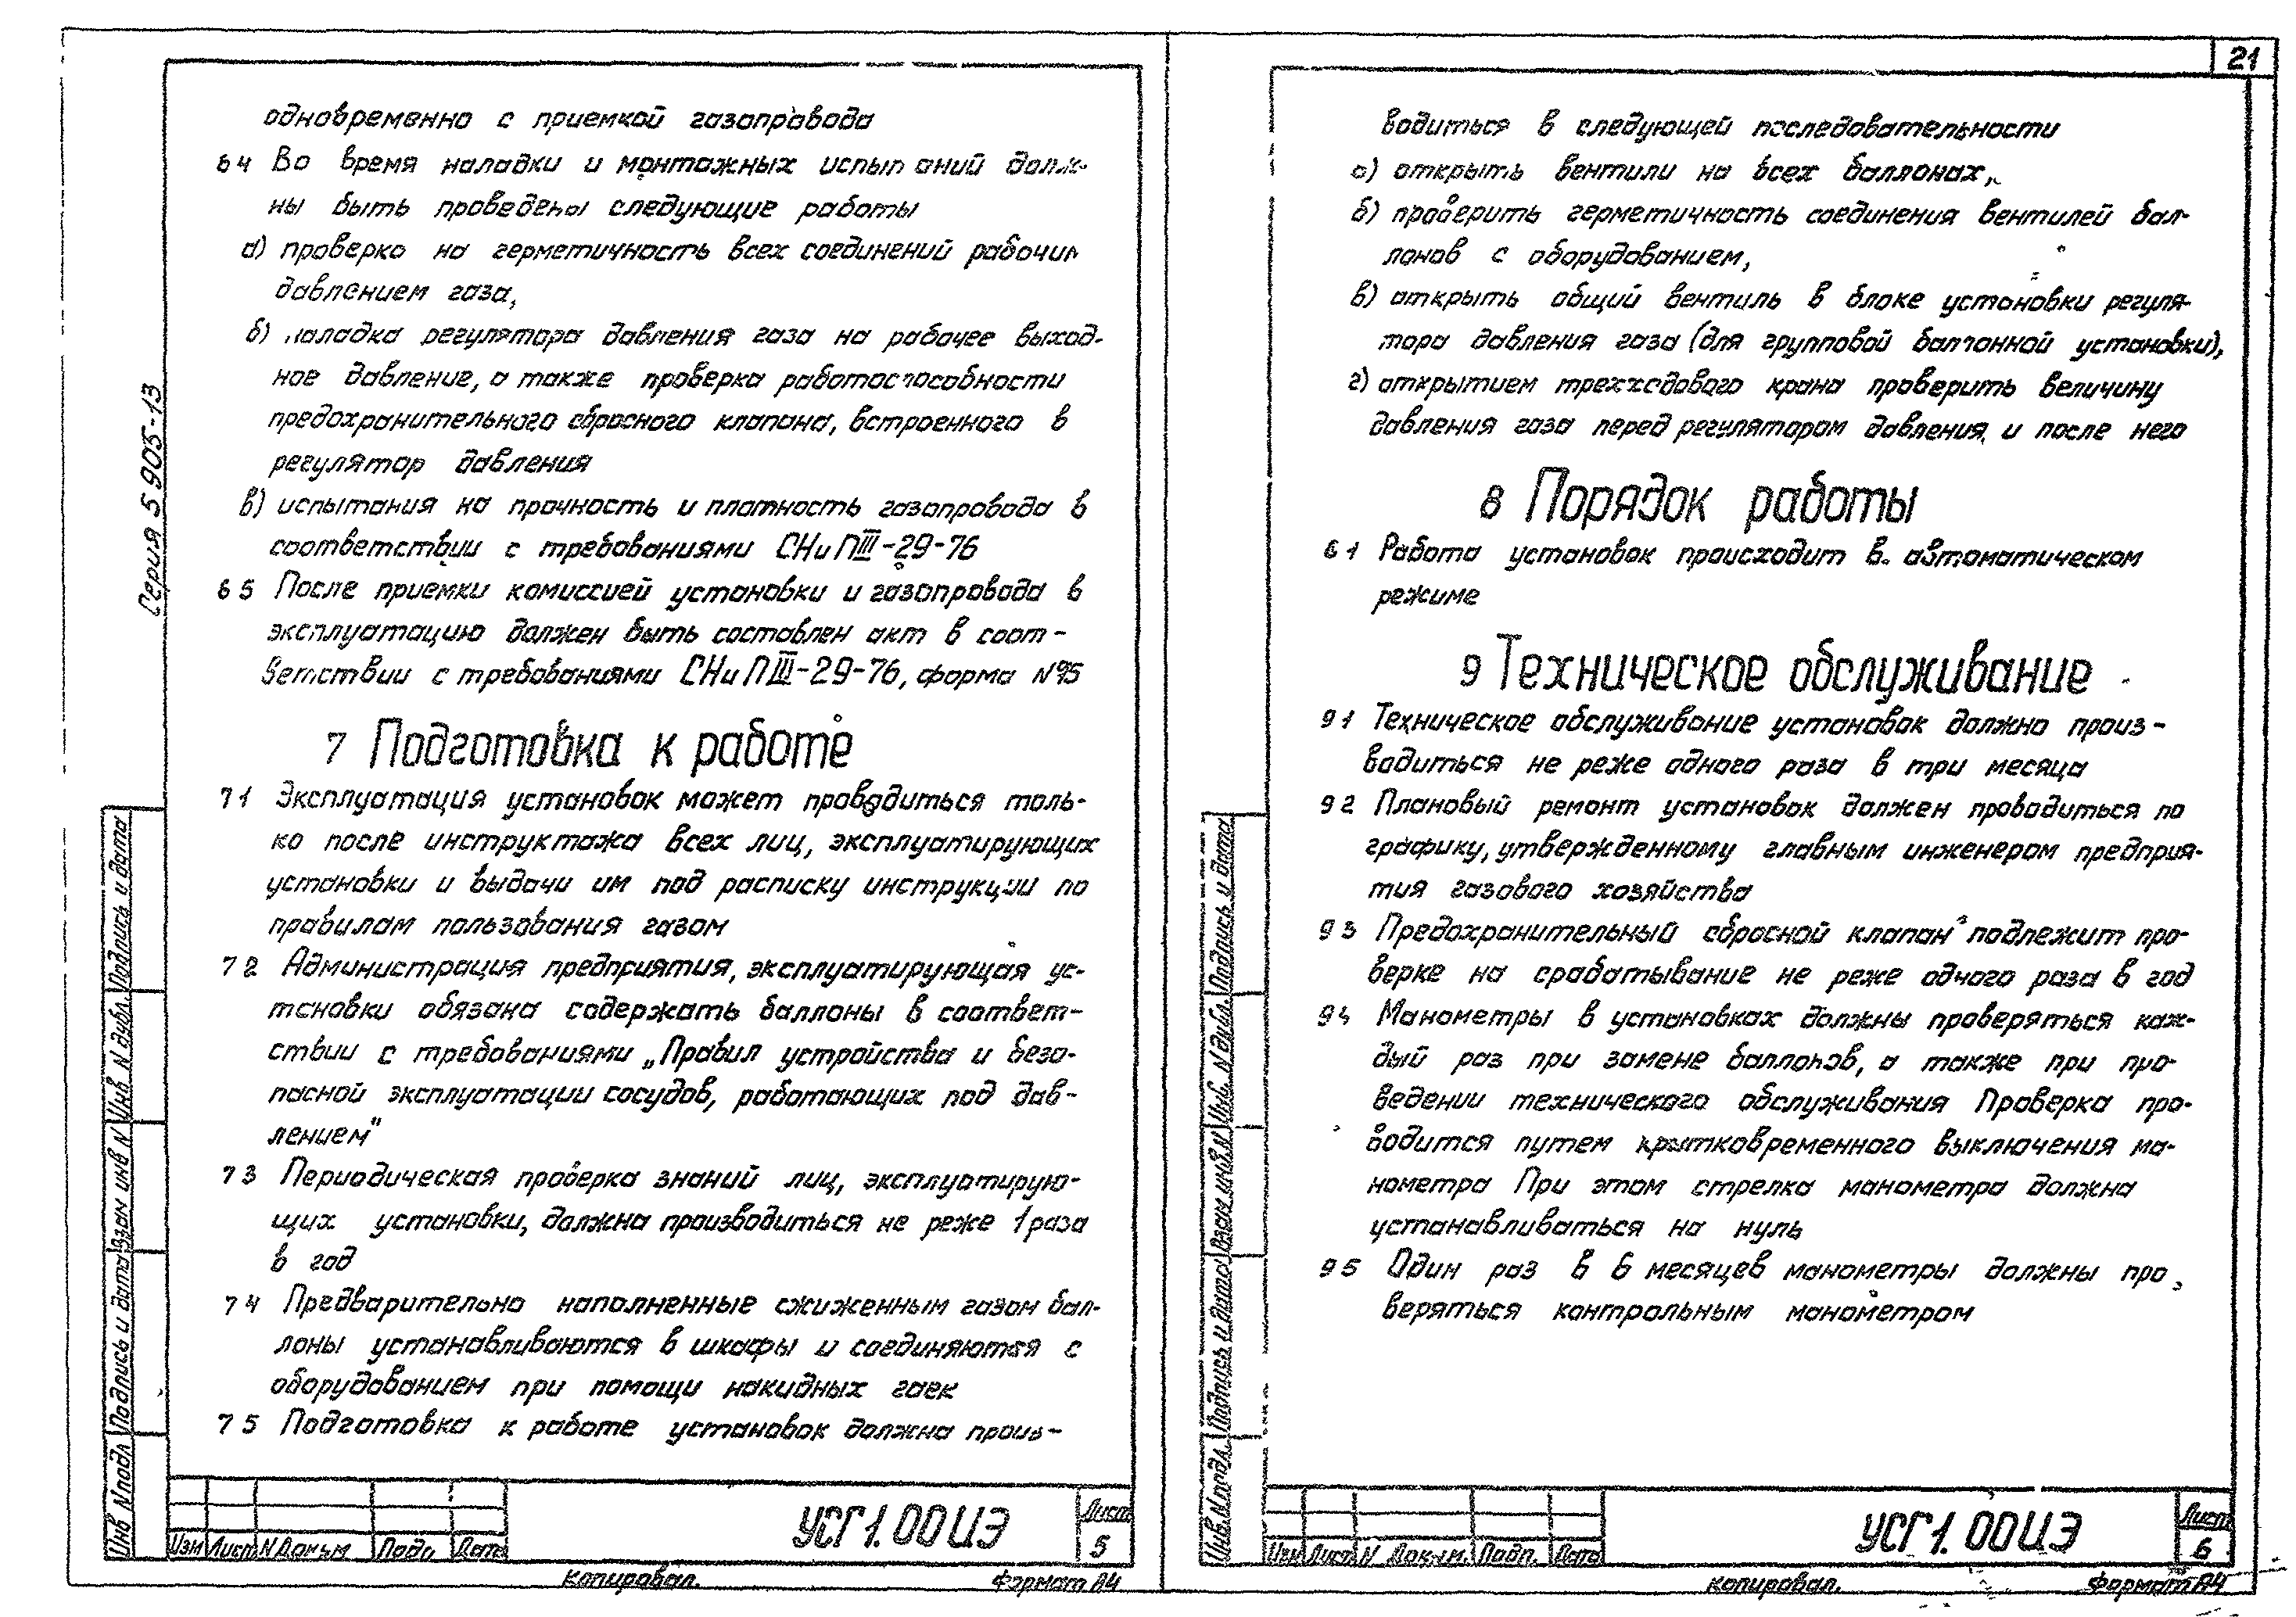 одновременно с приемкой газопровода
6 4 Во время наладки и монтажных испытаний долж-
ны быть проведены следующие работы
а) проверка на герметичность всех соединений рабочим
давлением газа,
б) наладка регулятора давления газа на рабочее выход-
ное давление, а также проверка работоспособности
предохранительного сбросного клапана, встроенного в
регулятор давления
в) испытания на прочность и плотность газопровода в
соответствии с требованиями СНиПIII-29-76
6 5 После приемки комиссией установки и газопровода в
эксплуатацию должен быть составлен акт в соот-
ветствии с требованиями СНиПIII-29-76, форма №5
7 Подготовка к работе
7 1 Эксплуатация установок может проводиться толь-
ко после инструктажа всех лиц, эксплуатирующих
установки и выдачи им под расписку инструкции по
правилам пользования газом
7 2 Администрация предприятия, эксплуатирующая ус-
тановки обязана содержать баллоны в соответ-
ствии с требованиями „Правил устройства и безо-
пасной эксплуатации сосудов, работающих под дав-
лением"
7 3 Периодическая проверка знаний лиц, эксплуатирую-
щих установки, должна производиться не реже 1 раза
в год
7 4 Предварительно наполненные сжиженным газом бал-
лоны устанавливаются в шкафы и соединяются с
оборудованием при помощи накидных гаек
7 5 Подготовка к работе установок должна произ-
Серия 5 905-13
Инв N подл
Подпись и дата
Взам инв N
Инв N дубл.
Подпись и дата
Изм Лист N Докум Подп Дата
УСГ1.00 ИЭ
Лист
5
Копировал.
Формат А4
21
водиться в следующей последовательности
а) открыть вентили на всех баллонах,
б) проверить герметичность соединения вентилей бал-
лонов с оборудованием,
в) открыть общий вентиль в блоке установки регуля-
тора давления газа (для групповой баллонной установки),
г) открытием трехходового крана проверить величину
давления газа перед регулятором давления и после него
8 Порядок работы
8 1 Работа установок происходит в автоматическом
режиме
9 Техническое обслуживание
9 1 Техническое обслуживание установок должно произ-
водиться не реже одного раза в три месяца
9 2 Плановый ремонт установок должен проводиться по
графику, утвержденному главным инженером предприя-
тия газового хозяйства
9 3 Предохранительный сбросной клапан подлежит про-
верке на срабатывание не реже одного раза в год
9 4 Манометры в установках должны проверяться каж-
дый раз при замене баллонов, а также при про-
ведении технического обслуживания Проверка про-
водится путем кратковременного выключения ма-
нометра При этом стрелка манометра должна
устанавливаться на нуль
9 5 Один раз в 6 месяцев манометры должны про
веряться контрольным манометром
Инв. N подл.
Подпись и дата
Взам инв. N
Инв. N дубл.
Подпись и дата
Изм Лист N Докум. Подп. Дата
УСГ1.00 ИЭ
Лист
6
Копировал.
Формат А4